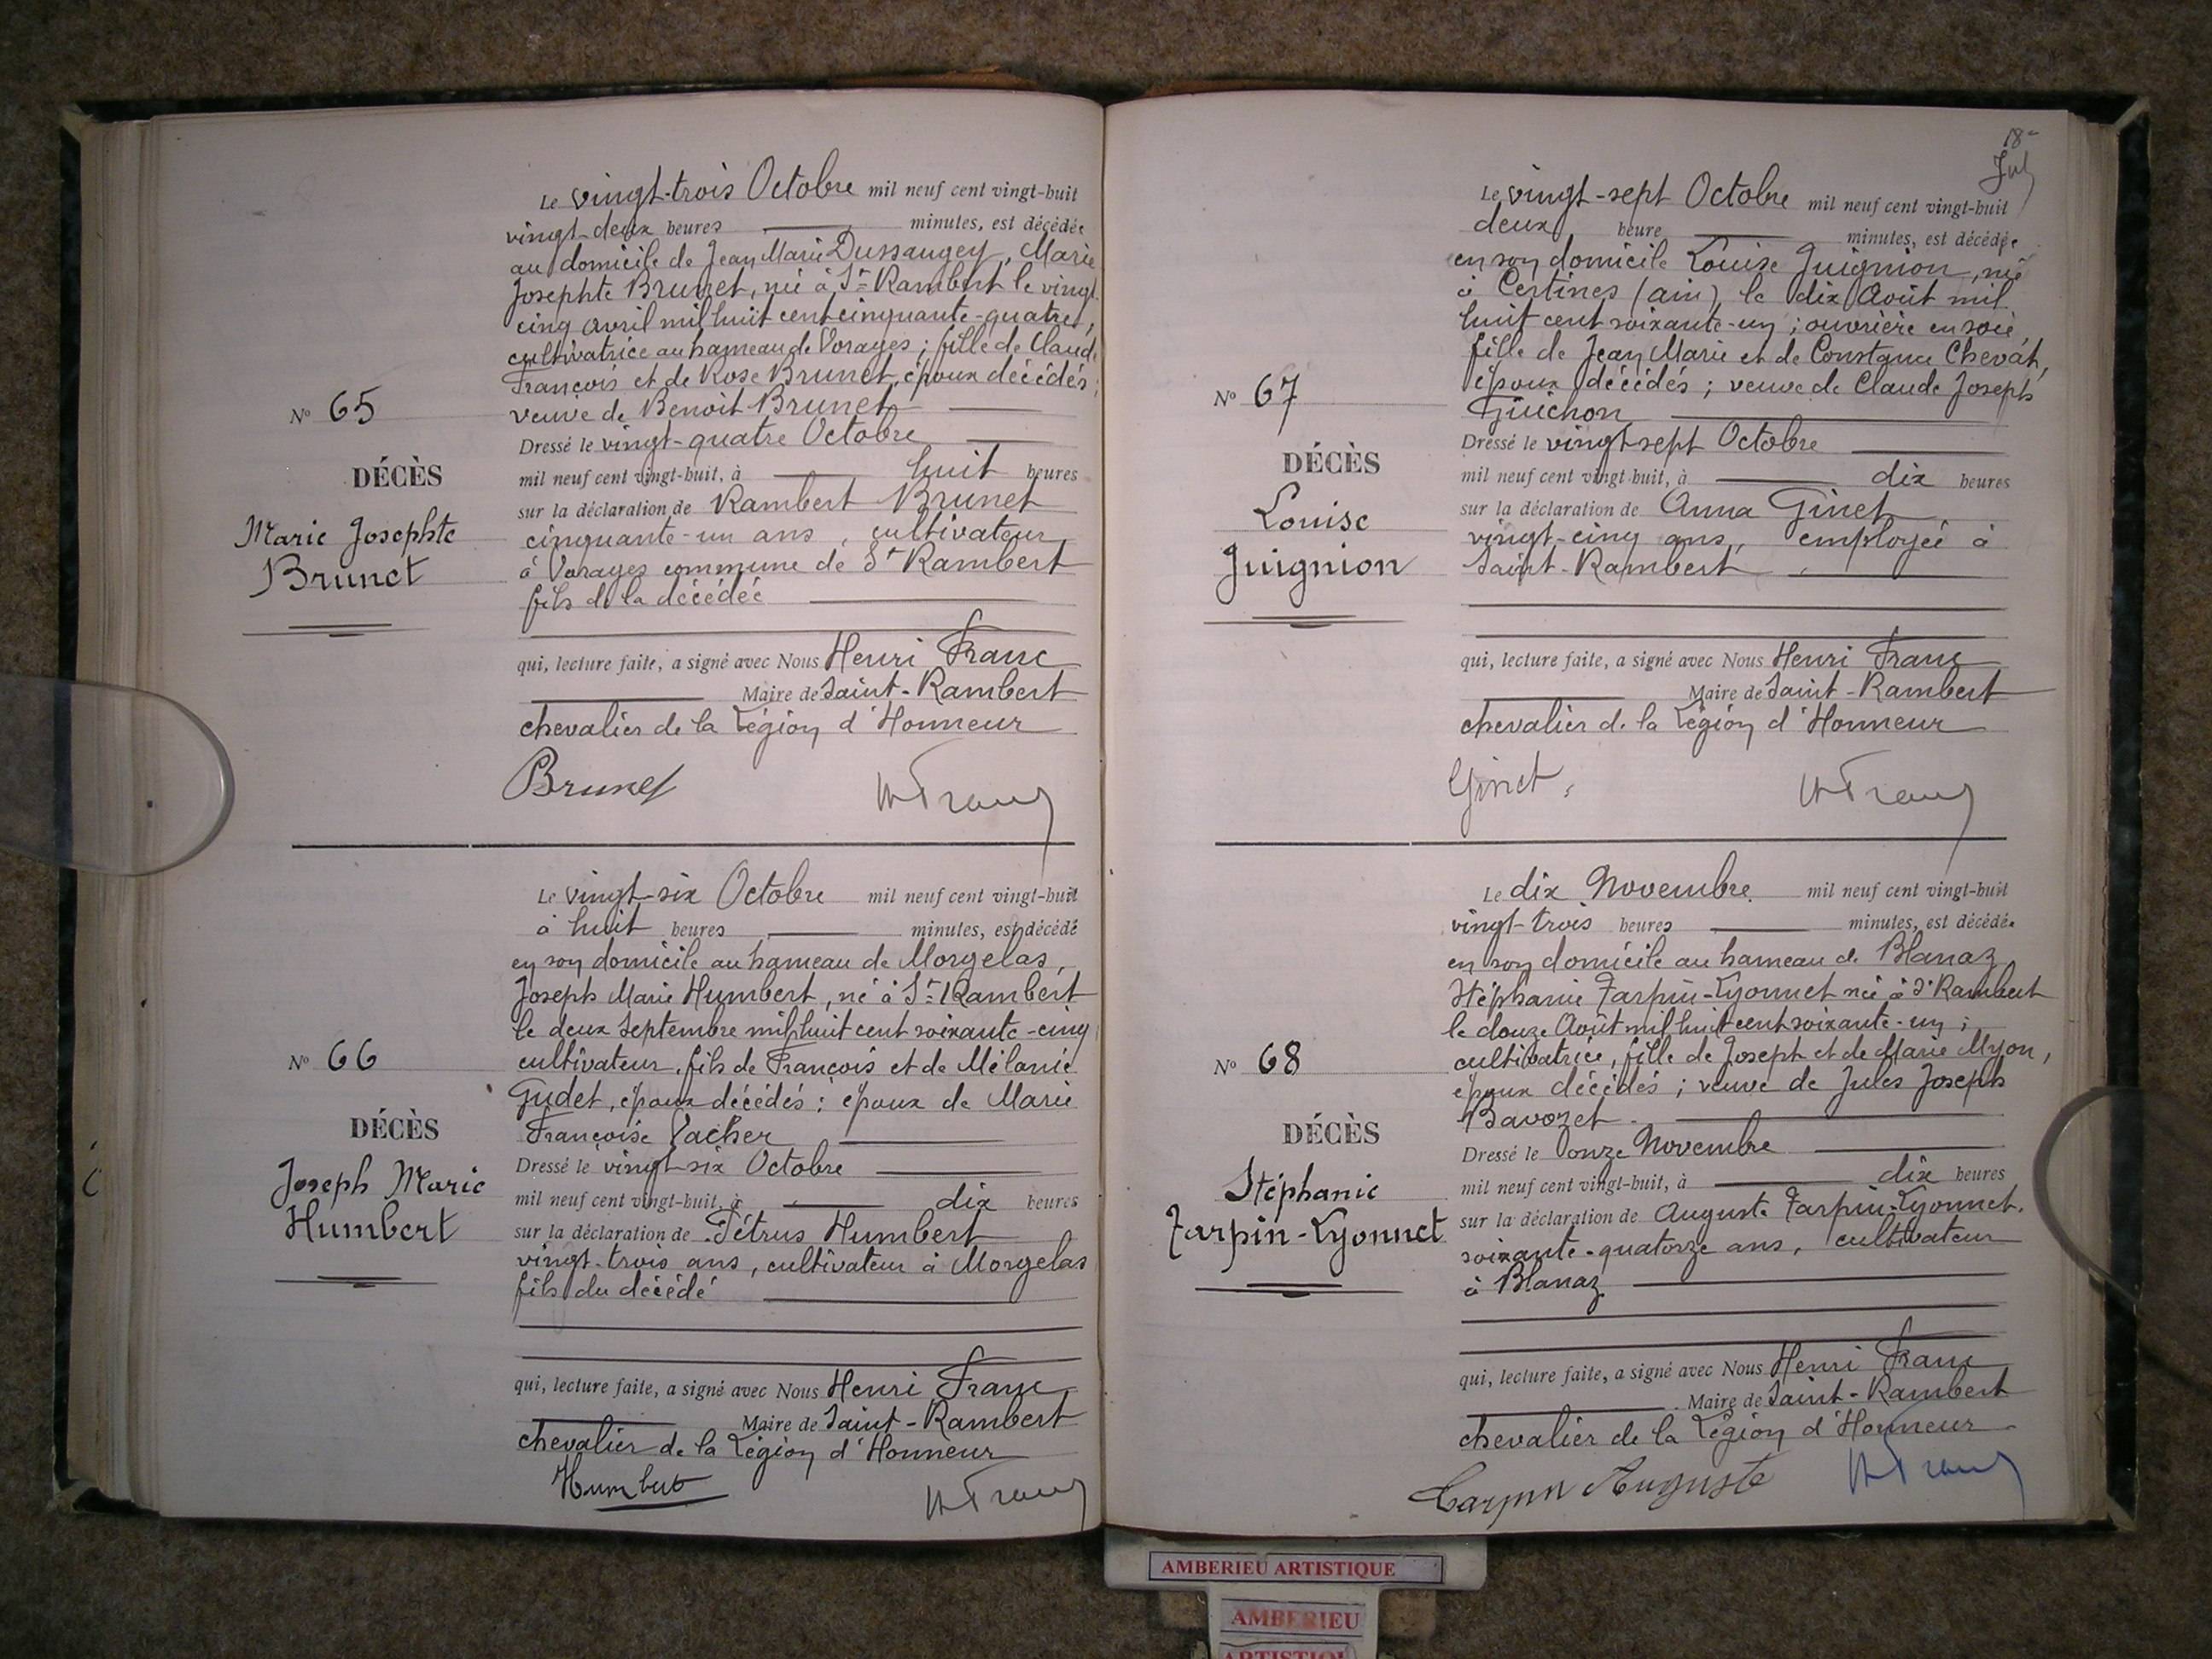 Le vingt-trois Octobre mil neuf cent vingt-huit
vingt deux heures minutes, est décédée
au domicile de Jean Marie Dussaugey, Marie
Josephte Brunet, née à St Rambert le vingt
cinq avril mil huit cent cinquante-quatre,
cultivatrice au hameau de Vorages ; fille de Claude
François et de Rose Brunet, époux décédés ;
veuve de Benoit Brunet
Dressé le vingt-quatre Octobre
mil neuf cent vingt-huit, à huit heures
sur la déclaration de Rambert Brunet
cinquante-un ans, cultivateur
à Vorages commune de St Rambert
fils de la décédée
qui, lecture faite, a signé avec Nous Henri Franc
Maire de Saint-Rambert
chevalier de la Légion d'Honneur
Brunet H Franc
No 65
DÉCÈS
Marie Josephte
Brunet
Le vingt-six Octobre mil neuf cent vingt-huit
à huit heures minutes, est décédé
en son domicile au hameau de Morgelas,
Joseph Marie Humbert, né à St Rambert
le deux Septembre mil huit cent soixante-cinq
cultivateur, fils de François et de Mélanie
Gudet, époux décédés ; époux de Marie
Françoise Vacher
Dressé le vingt-six Octobre
mil neuf cent vingt-huit, à dix heures
sur la déclaration de Pétrus Humbert
vingt-trois ans, cultivateur à Morgelas
fils du décédé
qui, lecture faite, a signé avec Nous Henri Franc
Maire de Saint-Rambert
chevalier de la Légion d'Honneur
Humbert H Franc
No 66
DÉCÈS
Joseph Marie
Humbert
18
Le vingt-sept Octobre mil neuf cent vingt-huit
deux heure minutes, est décédée
en son domicile Louise Juignion, née
à Certines (ain) le dix Août mil
huit cent soixante-un ; ouvrière en soie,
fille de Jean Marie et de Constance Chevat,
époux décédés ; veuve de Claude Joseph
Guichon
Dressé le vingt-sept Octobre
mil neuf cent vingt-huit, à dix heures
sur la déclaration de Anna Ginet
vingt-cinq ans, employée à
Saint-Rambert
qui, lecture faite, a signé avec Nous Henri Franc
Maire de Saint-Rambert
chevalier de la Légion d'Honneur
Ginet H Franc
No 67
DÉCÈS
Louise
Juignion
Le dix Novembre mil neuf cent vingt-huit
vingt-trois heures minutes, est décédée
en son domicile au hameau de Blanaz
Stéphanie Tarpin-Lyonnet née à St Rambert
le douze Août mil huit cent soixante-un ;
cultivatrice, fille de Joseph et de Marie Myon,
époux décédés ; veuve de Jules Joseph
Bavozet
Dressé le onze Novembre
mil neuf cent vingt-huit, à dix heures
sur la déclaration de Auguste Tarpin-Lyonnet,
soixante-quatorze ans, cultivateur
à Blanaz
qui, lecture faite, a signé avec Nous Henri Franc
Maire de Saint-Rambert
chevalier de la Légion d'Honneur
Tarpin Auguste H Franc
No 68
DÉCÈS
Stéphanie
Tarpin-Lyonnet
AMBERIEU ARTISTIQUE
AMBERIEU
ARTISTIQUE